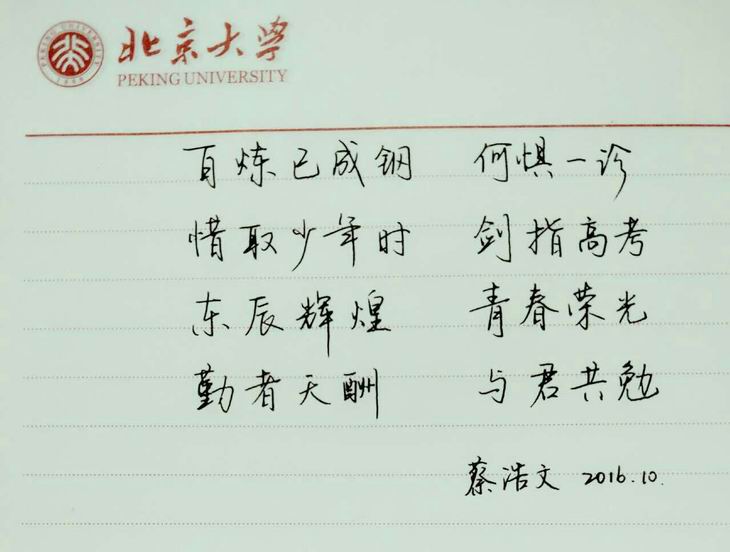 PEKING UNIVERSITY
1898
北京大学
PEKING UNIVERSITY
百炼已成钢 何惧一诊
惜取少年时 剑指高考
东辰辉煌 青春荣光
勤者天酬 与君共勉
蔡浩文 2016.10.